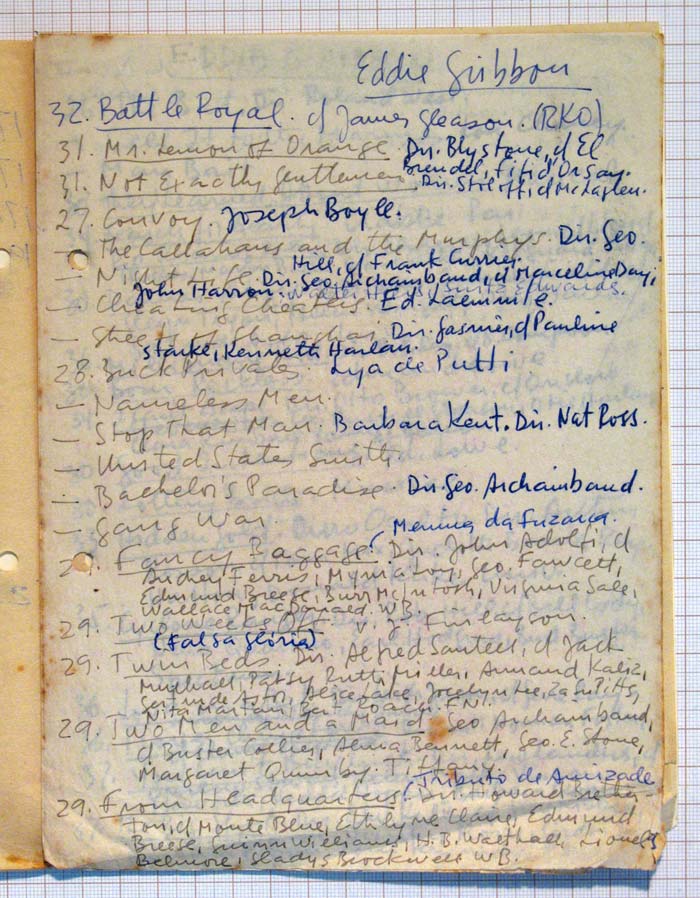 Eddie Gribbon
32. Battle Royal. c/ James Gleason. (RKO)
31. Mr. Lemon of Orange. Dir. Blystone, c/ El
Brendel, Fifi d'Orsay.
31. Not Exactly Gentlemen. Dir. Stoloff, c/ McLaglen.
27. Convoy. Joseph Boyle.
— The Callahans and the Murphys. Dir. Geo.
Hill, c/ Frank Currier.
— Night Life. Dir. Geo. Archainbaud, c/ Marceline Day,
John Harron. Walter Hiers, Snitz Edwards.
— Cheating Cheaters. Ed. Laemmle.
— Streets of Shanghai. Dir. Gasnier, c/ Pauline
Starke, Kenneth Harlan.
28. Buck Privates. Lya de Putti.
— Nameless Men.
— Stop That Man. Barbara Kent. Dir. Nat Ross.
— United States Smith.
— Bachelor's Paradise. Dir. Geo. Archainbaud.
— Gang War.
(Menina da Fuzarca.
29. Fancy Baggage. Dir. John Adolfi, c/
Audrey Ferris, Myrna Loy, Geo. Fawcett,
Edmund Breese, Burr McIntosh, Virginia Sale,
Wallace MacDonald. WB.
29. Two Weeks Off. v. J. Finlayson.
(Falsa Glória)
29. Twin Beds. Dir. Alfred Santell, c/ Jack
Mulhall, Patsy Ruth Miller, Armand Kaliz,
Gertrude Astor, Alice Lake, Jocelyn Lee, ZaSu Pitts,
Nita Martan, Bert Roach. FN.
29. Two Men and a Maid. Geo Archainbaud,
c/ Buster Collier, Alma Bennett, Geo. E. Stone,
Margaret Quimby. Tiffany.
(Tributo de Amizade
29. From Headquarters. Dir. Howard Brether-
ton, c/ Monte Blue, Ethlyne Claire, Edmund
Breese, Guinn Williams, H.B. Walthall, Lionel
Belmore, Gladys Brockwell WB.